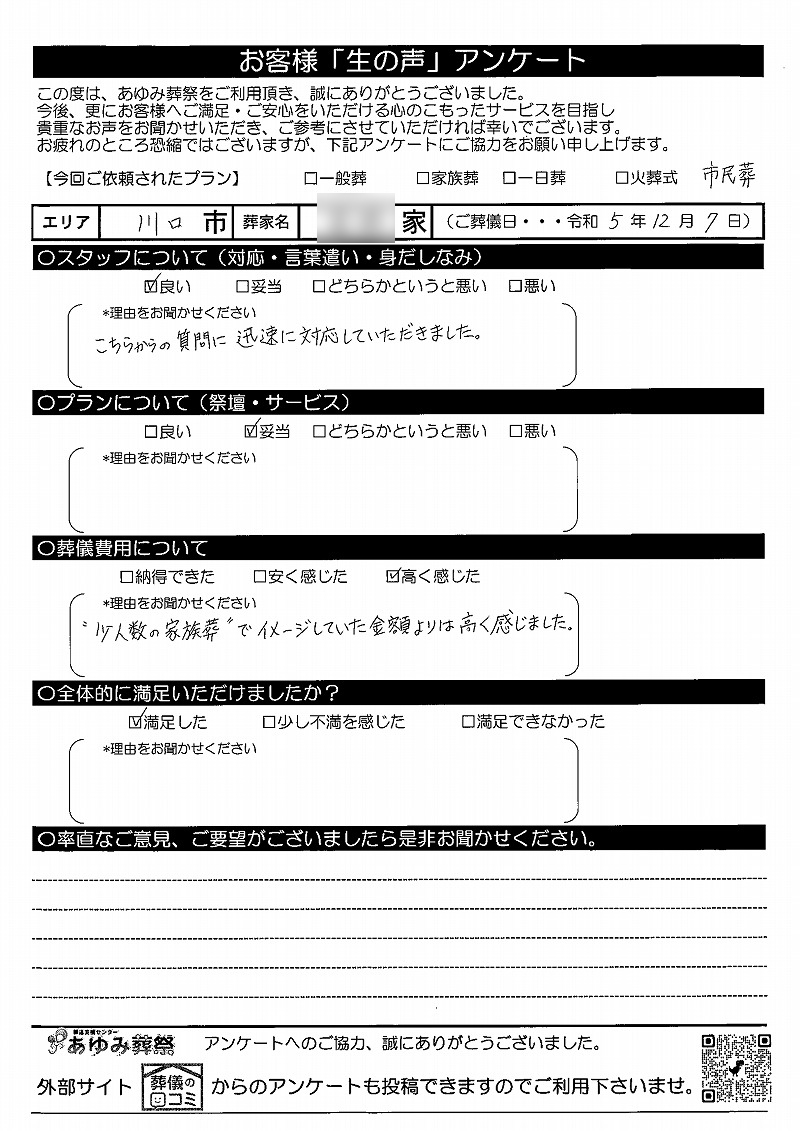 お客様「生の声」アンケート
この度は、あゆみ葬祭をご利用頂き、誠にありがとうございました。
今後、更にお客様へご満足・ご安心をいただける心のこもったサービスを目指し
貴重なお声をお聞かせいただき、ご参考にさせていただければ幸いでございます。
お疲れのところ恐縮ではございますが、下記アンケートにご協力をお願い申し上げます。
【今回ご依頼されたプラン】 □一般葬 □家族葬 □一日葬 □火葬式 市民葬
エリア 川口 市 葬家名 家 (ご葬儀日・・・令和 5 年 12 月 7 日)
○スタッフについて(対応・言葉遣い・身だしなみ)
☑良い □妥当 □どちらかというと悪い □悪い
*理由をお聞かせください
こちらからの質問に 迅速に対応していただきました。
○プランについて(祭壇・サービス)
□良い ☑妥当 □どちらかというと悪い □悪い
*理由をお聞かせください
○葬儀費用について
□納得できた □安く感じた ☑高く感じた
*理由をお聞かせください
"少人数の家族葬"でイメージしていた金額よりは高く感じました。
○全体的に満足いただけましたか?
☑満足した □少し不満を感じた □満足できなかった
*理由をお聞かせください
○率直なご意見、ご要望がございましたら是非お聞かせください。
葬送支援センター
あゆみ葬祭 アンケートへのご協力、誠にありがとうございました。
外部サイト 葬儀の口コミ からのアンケートも投稿できますのでご利用下さいませ。